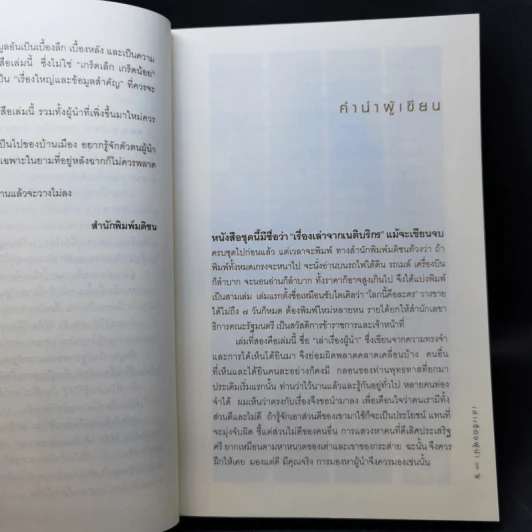 มูลอันเป็นเบื้องลึก เบื้องหลัง และเป็นความ
สือเล่มนี้ ซึ่งไม่ใช่ "เกร็ดเล็ก เกร็ดน้อย"
ป็น "เรื่องใหญ่และข้อมูลสำคัญ" ที่ควรจะ
สือเล่มนี้ รวมทั้งผู้นำที่เพิ่งขึ้นมาใหม่ควร
ป็นไปของบ้านเมือง อยากรู้จักตัวตนผู้นำ
เฉพาะในยามที่อยู่หลังฉากก็ไม่ควรพลาด
านแล้วจะวางไม่ลง
สำนักพิมพ์มติชน
คำนำผู้เขียน
หนังสือชุดนี้มีชื่อว่า "เรื่องเล่าจากเนติบริกร" แม้จะเขียนจบ
ครบชุดไปก่อนแล้ว แต่เวลาจะพิมพ์ ทางสำนักพิมพ์มติชนท้วงว่า ถ้า
พิมพ์ทั้งหมดเกรงจะหนาไป จะนั่งอ่านบนรถไฟใต้ดิน รถเมล์ เครื่องบิน
ก็ลำบาก จะนอนอ่านก็ลำบาก ทั้งราคาก็อาจสูงเกินไป จึงได้แบ่งพิมพ์
เป็นสามเล่ม เล่มแรกตั้งชื่อเหมือนซับไตเติลว่า "โลกนี้คือละคร" วางขาย
ได้ไม่ถึง ๗ วันก็หมด ต้องพิมพ์ใหม่หลายหน รายได้ยกให้สำนักเลขา
ธิการคณะรัฐมนตรี เป็นสวัสดิการข้าราชการและเจ้าหน้าที่
เล่มที่สองคือเล่มนี้ ชื่อ "เล่าเรื่องผู้นำ" ซึ่งเขียนจากความทรงจำ
และการได้เห็นได้ยินมา จึงย่อมผิดพลาดคลาดเคลื่อนบ้าง คนอื่น
ที่เห็นและได้ยินคนละอย่างก็คงมี กลอนของท่านพุทธทาสที่ยกมา
ประเดิมเริ่มแรกนั้น ท่านว่าไว้นานแล้วและรู้กันอยู่ทั่วไป หลายคนท่อง
จำได้ ผมเห็นว่าตรงกับเรื่องจึงขอนำมาลง เพื่อเตือนใจว่าคนเรามีทั้ง
ส่วนดีและไม่ดี ถ้ารู้จักเอาส่วนดีของเขามาใช้ก็จะเป็นประโยชน์ แทนที่
จะมุ่งจับผิด ชี้แต่ส่วนไม่ดีของคนอื่น การแสวงหาคนที่ดีเลิศประเสริฐ
ศรี ยากเหมือนตามหาหนวดของเต่าและเขาของกระต่าย ฉะนั้น จึงควร
ฝึกให้เคย มองแต่ดี มีคุณจริง การมองหาผู้นำจึงควรมองเช่นนั้น
เล่าเรื่องผู้นำ